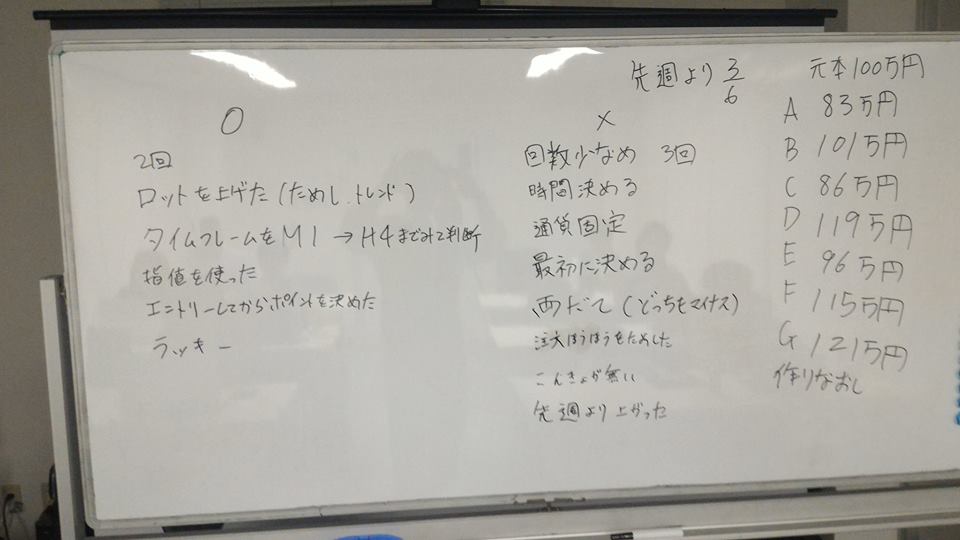 先週より 3/6
元本100万円
○
2回
ロットを上げた(ためし、トレンド)
タイムフレームをM1→H4までみて判断
指値を使った
エントリーしてからポイントを決めた
ラッキー
×
回数少なめ 3回
時間決める
通貨固定
最初に決める
両だて(どっちもマイナス)
注文ほうほうをためした
こんきょが無い
先週より上がった
A 83万円
B 101万円
C 86万円
D 119万円
E 96万円
F 115万円
G 121万円
作りなおし